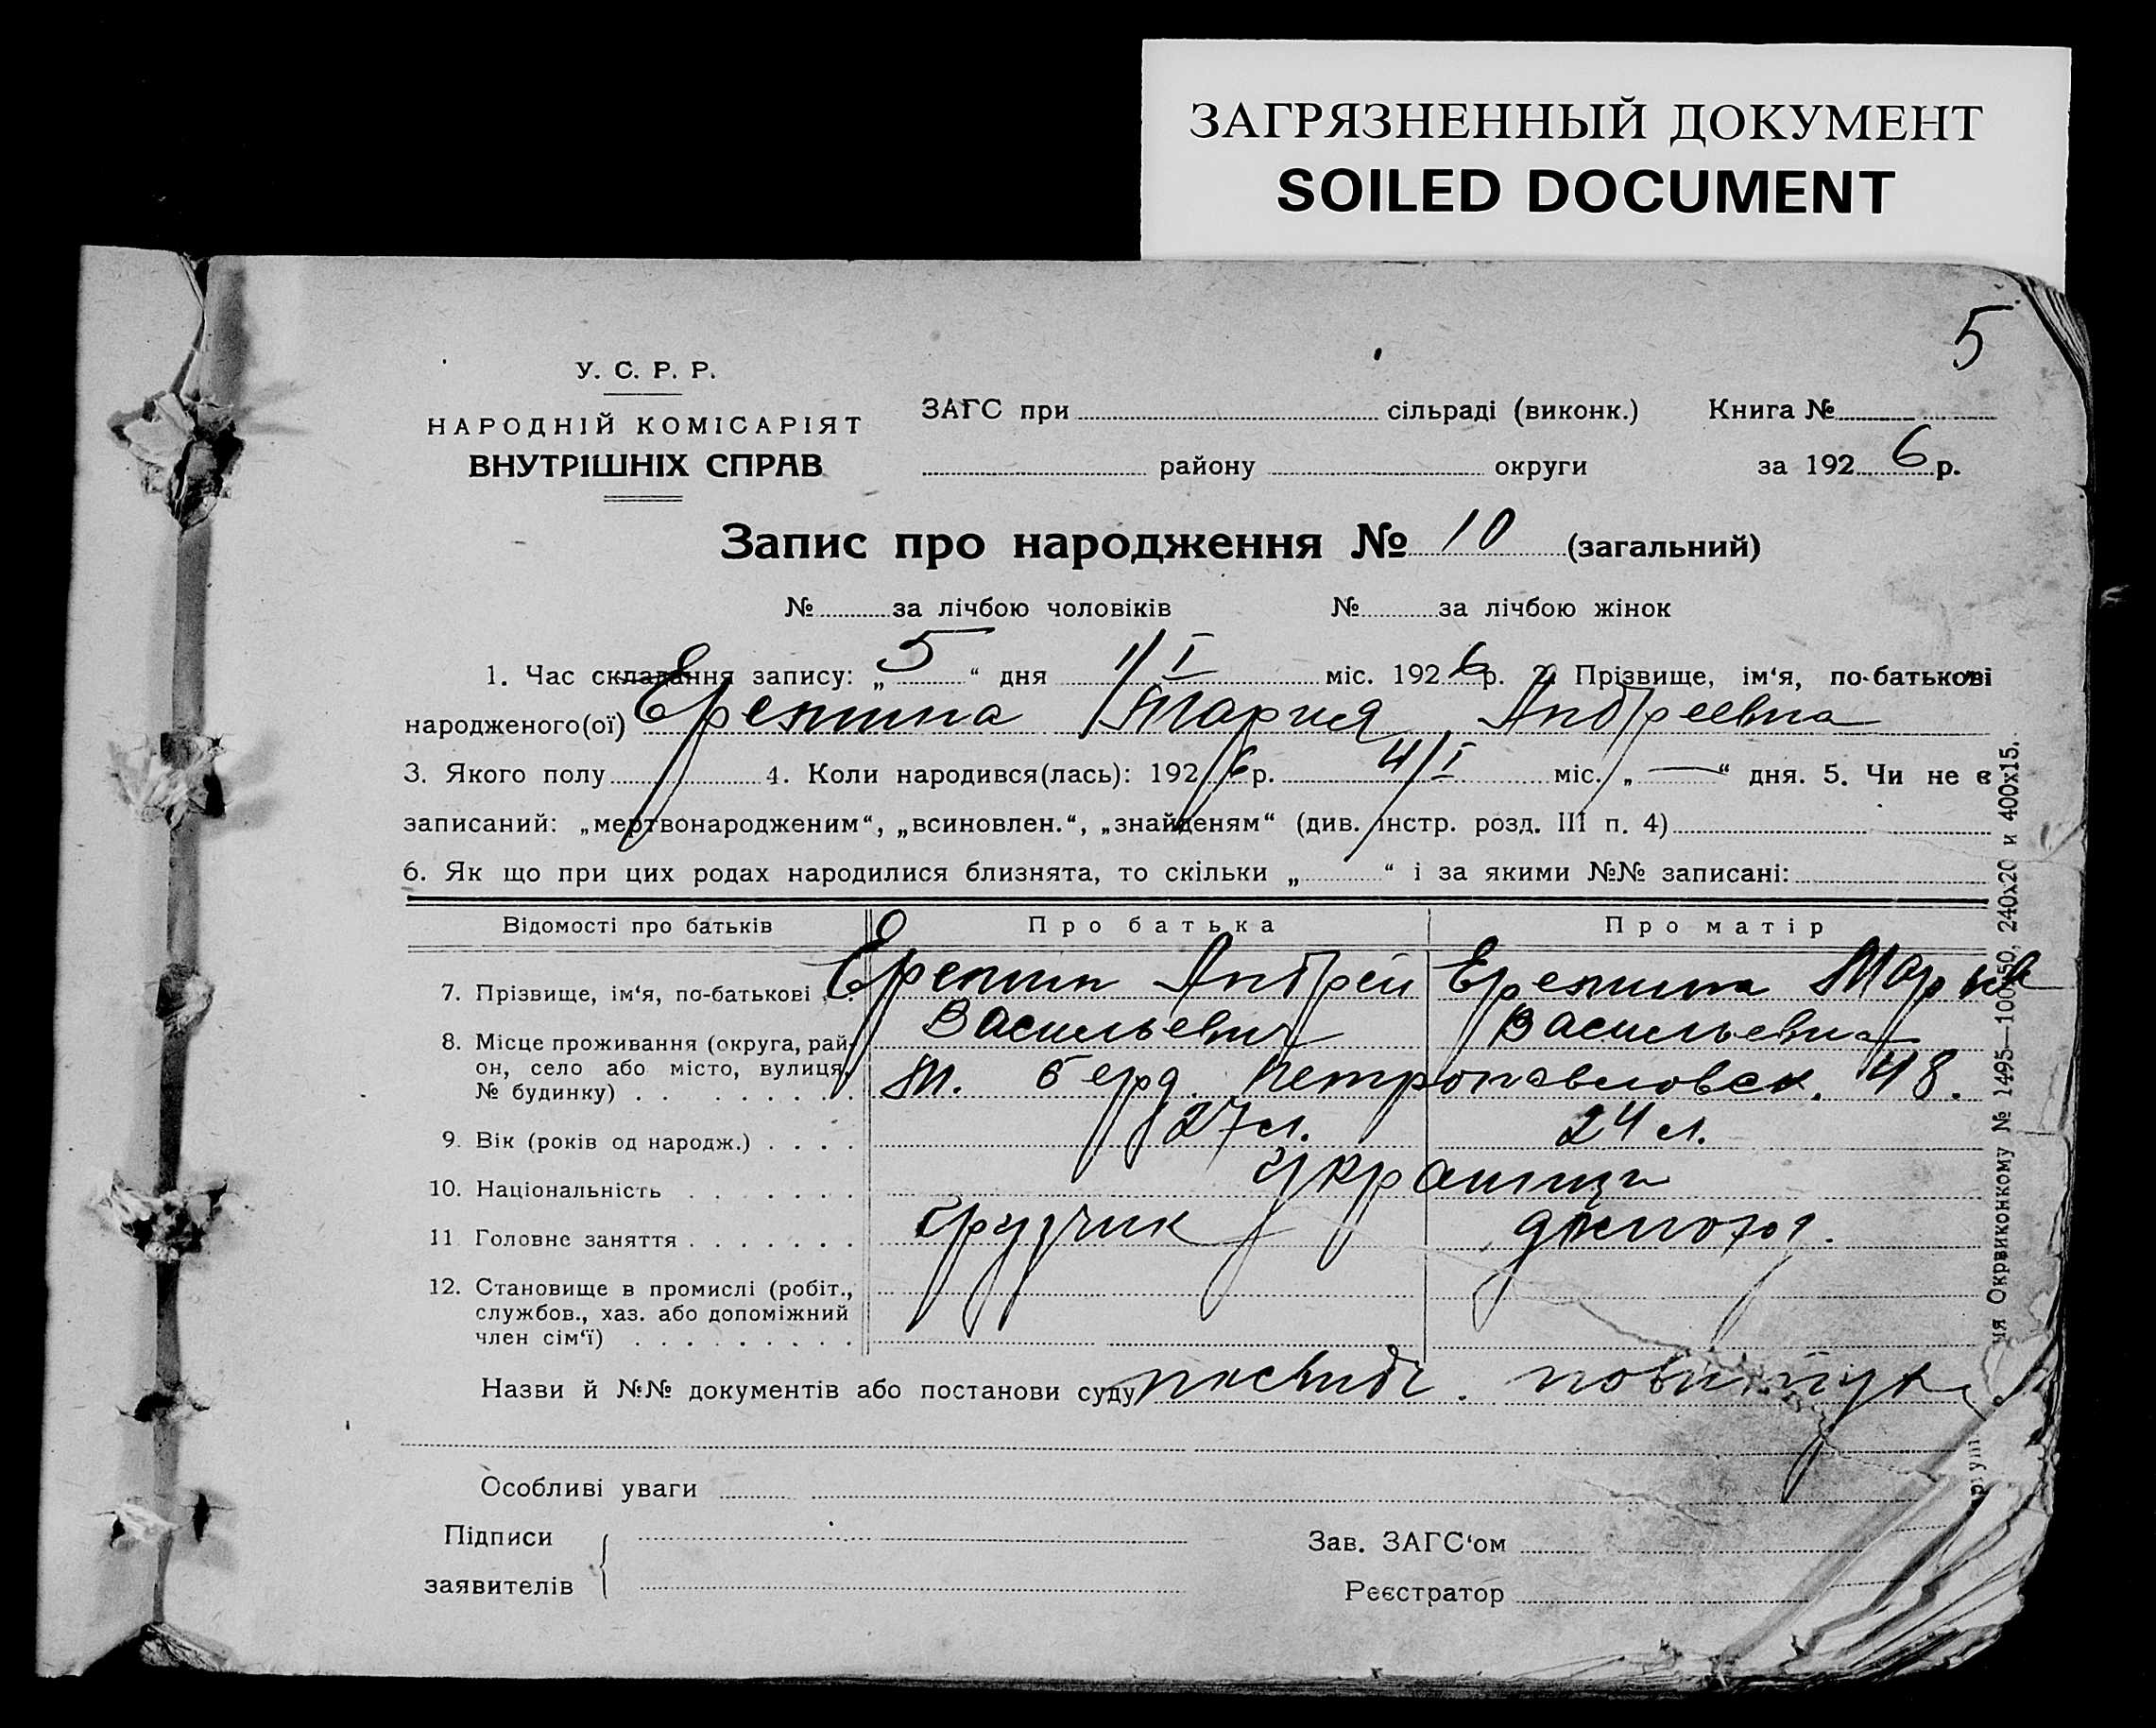 ЗАГРЯЗНЕННЫЙ ДОКУМЕНТ
SOILED DOCUMENT
5
У. С. Р. Р.
НАРОДНІЙ КОМІСАРІЯТ
ВНУТРІШНІХ СПРАВ
ЗАГС при сільраді (виконк.) Книга №
району округи за 1926 р.
Запис про народження № 10 (загальний)
№ за лічбою чоловіків № за лічбою жінок
1. Час складання запису: „5“ дня 1/I міс. 1926 р. 2. Прізвище, ім‘я, по-батькові
народженого(ої) Мария Андреевна
3. Якого полу 4. Коли народився(лась): 1926 р. 4/I міс. „—“ дня. 5. Чи не є
записаний: „мертвонародженим“, „всиновлен.“, „знайденям“ (див. інстр. розд. III п. 4)
6. Як що при цих родах народилися близнята, то скільки „ “ і за якими №№ записані:
Відомості про батьків Про батька Про матір
7. Прізвище, ім‘я, по-батькові . . Андрей Мария
Васильевич Васильевна
8. Місце проживання (округа, рай-
он, село або місто, вулиця,
№ будинку) . . . . . . . . М. Берд. Петропавловск. 48.
9. Вік (років од народж.) . . . . 27 л. 24 л.
10. Національність . . . . . . . украинцы
11 Головне заняття . . . . . . . грузчик домохоз.
12. Становище в промислі (робіт.,
службов., хаз. або допоміжний
член сім‘ї) . . . . . . . . .
Назви й №№ документів або постанови суду
Особливі уваги
Підписи
заявителів
Зав. ЗАГС‘ом
Реєстратор
Окрвиконкому № 1495—100×50, 240х20 и 400х15.